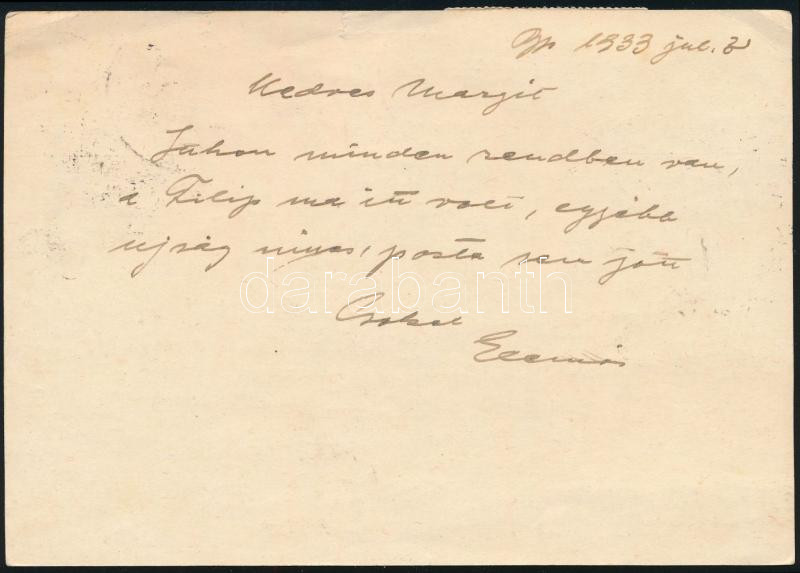 Bp 1933 jul. 2
Kedves Margit
Itthon minden rendben van,
a Filip ma itt volt, egyéb
ujság nincs, posta sem jött
darabanth
Csókol
Elemér